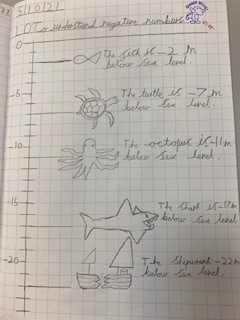 5/10/21
LO To understand negative numbers
0
The fish is -2 m
below sea level.
-5
The turtle is -7 m
below sea level.
-10
The octopus is -11m
below sea level.
-15
The shark is -17m
below sea level.
-20
The shipwreck -22m
below sea level.